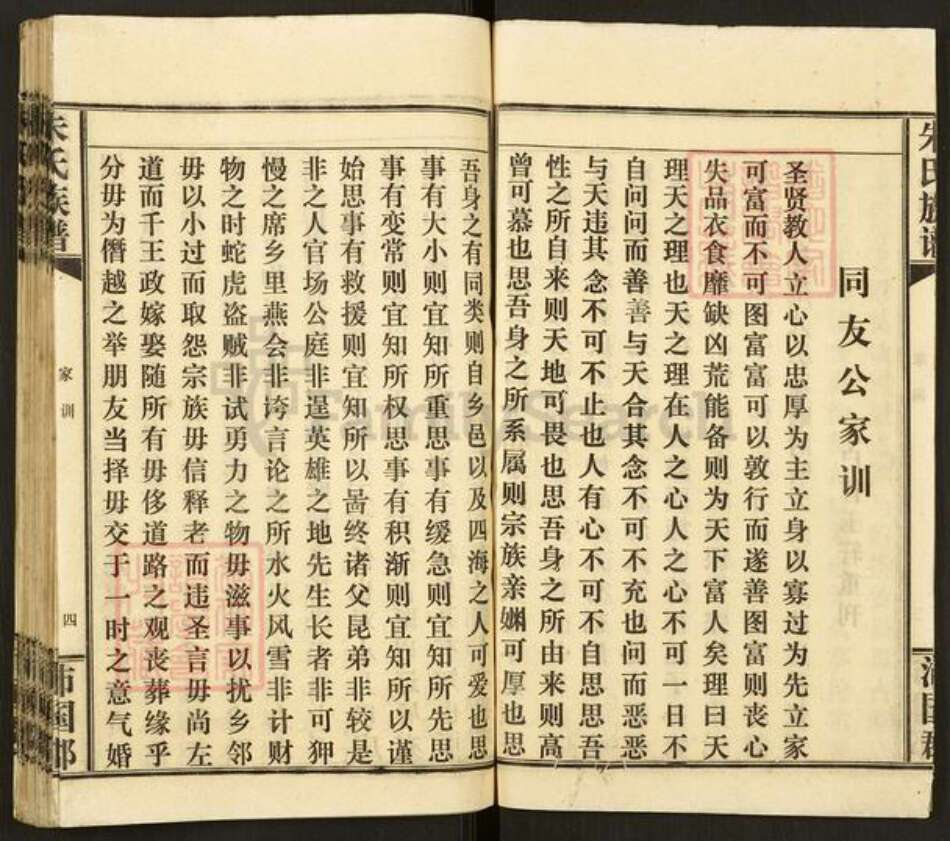 同友公家训
圣贤教人立心以忠厚为主立身以寡过为先立家
可富而不可图富富可以敦行而遂善图富则丧心
失品衣食靡缺凶荒能备则为天下富人矣理曰天
理天之理也天之理在人之心人之心不可一日不
自问问而善善与天合其念不可不充也问而恶恶
与天违其念不可不止也人有心不可不自思思吾
性之所自来则天地可畏也思吾身之所由来则高
曾可慕也思吾身之所系属则宗族亲婣可厚也思
吾身之有同类则自乡邑以及四海之人可爱也思
事有大小则宜知所重思事有缓急则宜知所先思
事有变常则宜知所权思事有积渐则宜知所以谨
始思事有救援则宜知所以啚终诸父昆弟非较是
非之人官场公庭非逞英雄之地先生长者非可狎
慢之席乡里燕会非谤言论之所水火风雪非计财
物之时蛇虎盗贼非试勇力之物毋滋事以扰乡邻
毋以小过而取怨宗族毋信释老而违圣言毋尚左
道而干王政嫁娶随所有毋侈道路之观丧葬缘乎
分毋为僭越之举朋友当择毋交于一时之意气婚
朱氏族谱
家训
四
沛国郡
FamilySearch